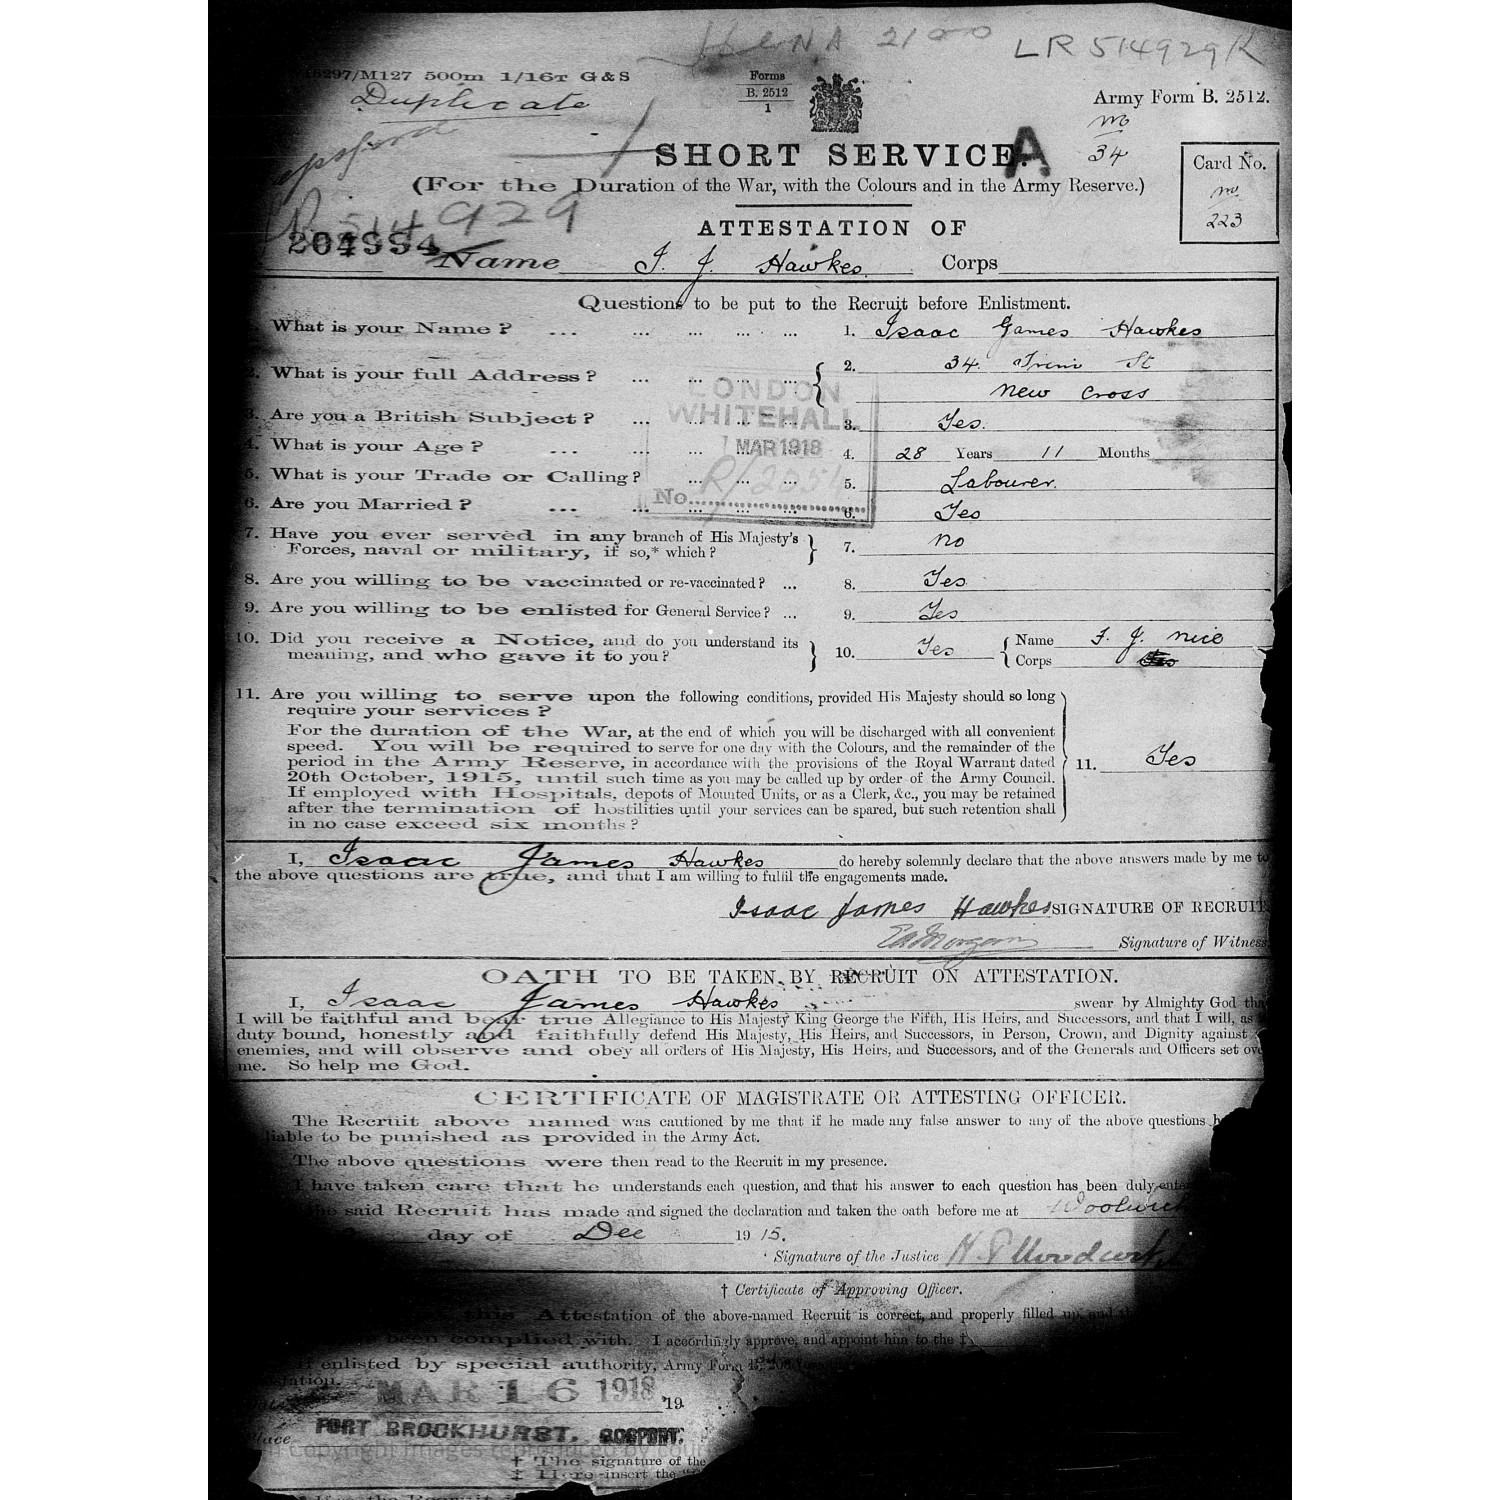 LR 514929
/M127 500m 1/16T G & S
Forms
B. 2512
1
Army Form B. 2512.
Duplicate
34
A
SHORT SERVICE.
Card No.
223
(For the Duration of the War, with the Colours and in the Army Reserve.)
514929
ATTESTATION OF
Name I. J. Hawkes. Corps
Questions to be put to the Recruit before Enlistment.
What is your Name? ... ... ... ... ... 1. Isaac James Hawkes
2. What is your full Address? ... ... ... ... { 2. 34 St
New Cross
LONDON
WHITEHALL
MAR 1918
No.
3. Are you a British Subject? ... ... ... ... 3. Yes.
4. What is your Age? ... ... ... ... 4. 28 Years 11 Months
5. What is your Trade or Calling? ... ... ... 5. Labourer.
6. Are you Married? ... ... ... ... ... 6. Yes
7. Have you ever served in any branch of His Majesty's
Forces, naval or military, if so,* which? } 7. No
8. Are you willing to be vaccinated or re-vaccinated? ... 8. Yes
9. Are you willing to be enlisted for General Service? ... 9. Yes
10. Did you receive a Notice, and do you understand its
meaning, and who gave it to you? } 10. Yes { Name J. Nice
Corps
11. Are you willing to serve upon the following conditions, provided His Majesty should so long
require your services?
For the duration of the War, at the end of which you will be discharged with all convenient
speed. You will be required to serve for one day with the Colours, and the remainder of the
period in the Army Reserve, in accordance with the provisions of the Royal Warrant dated
20th October, 1915, until such time as you may be called up by order of the Army Council.
If employed with Hospitals, depots of Mounted Units, or as a Clerk, &c., you may be retained
after the termination of hostilities until your services can be spared, but such retention shall
in no case exceed six months? } 11. Yes
I, Isaac James Hawkes do hereby solemnly declare that the above answers made by me to
the above questions are true, and that I am willing to fulfil the engagements made.
Isaac James Hawkes SIGNATURE OF RECRUIT
Signature of Witness
OATH TO BE TAKEN BY RECRUIT ON ATTESTATION.
I, Isaac James Hawkes swear by Almighty God that
I will be faithful and bear true Allegiance to His Majesty King George the Fifth, His Heirs, and Successors, and that I will, as
duty bound, honestly and faithfully defend His Majesty, His Heirs, and Successors, in Person, Crown, and Dignity against
enemies, and will observe and obey all orders of His Majesty, His Heirs, and Successors, and of the Generals and Officers set over
me. So help me God.
CERTIFICATE OF MAGISTRATE OR ATTESTING OFFICER.
The Recruit above named was cautioned by me that if he made any false answer to any of the above questions
liable to be punished as provided in the Army Act.
The above questions were then read to the Recruit in my presence.
I have taken care that he understands each question, and that his answer to each question has been duly
said Recruit has made and signed the declaration and taken the oath before me at Woolwich
day of Dec 1915.
Signature of the Justice
† Certificate of Approving Officer.
this Attestation of the above-named Recruit is correct, and properly filled up, and
been complied with. I accordingly approve, and appoint him to the ‡
If enlisted by special authority, Army Form
MAR 16 1918 19
FORT BROCKHURST. GOSPORT.
Place
Copyright images reproduced by
† The signature of the
‡ Here insert the